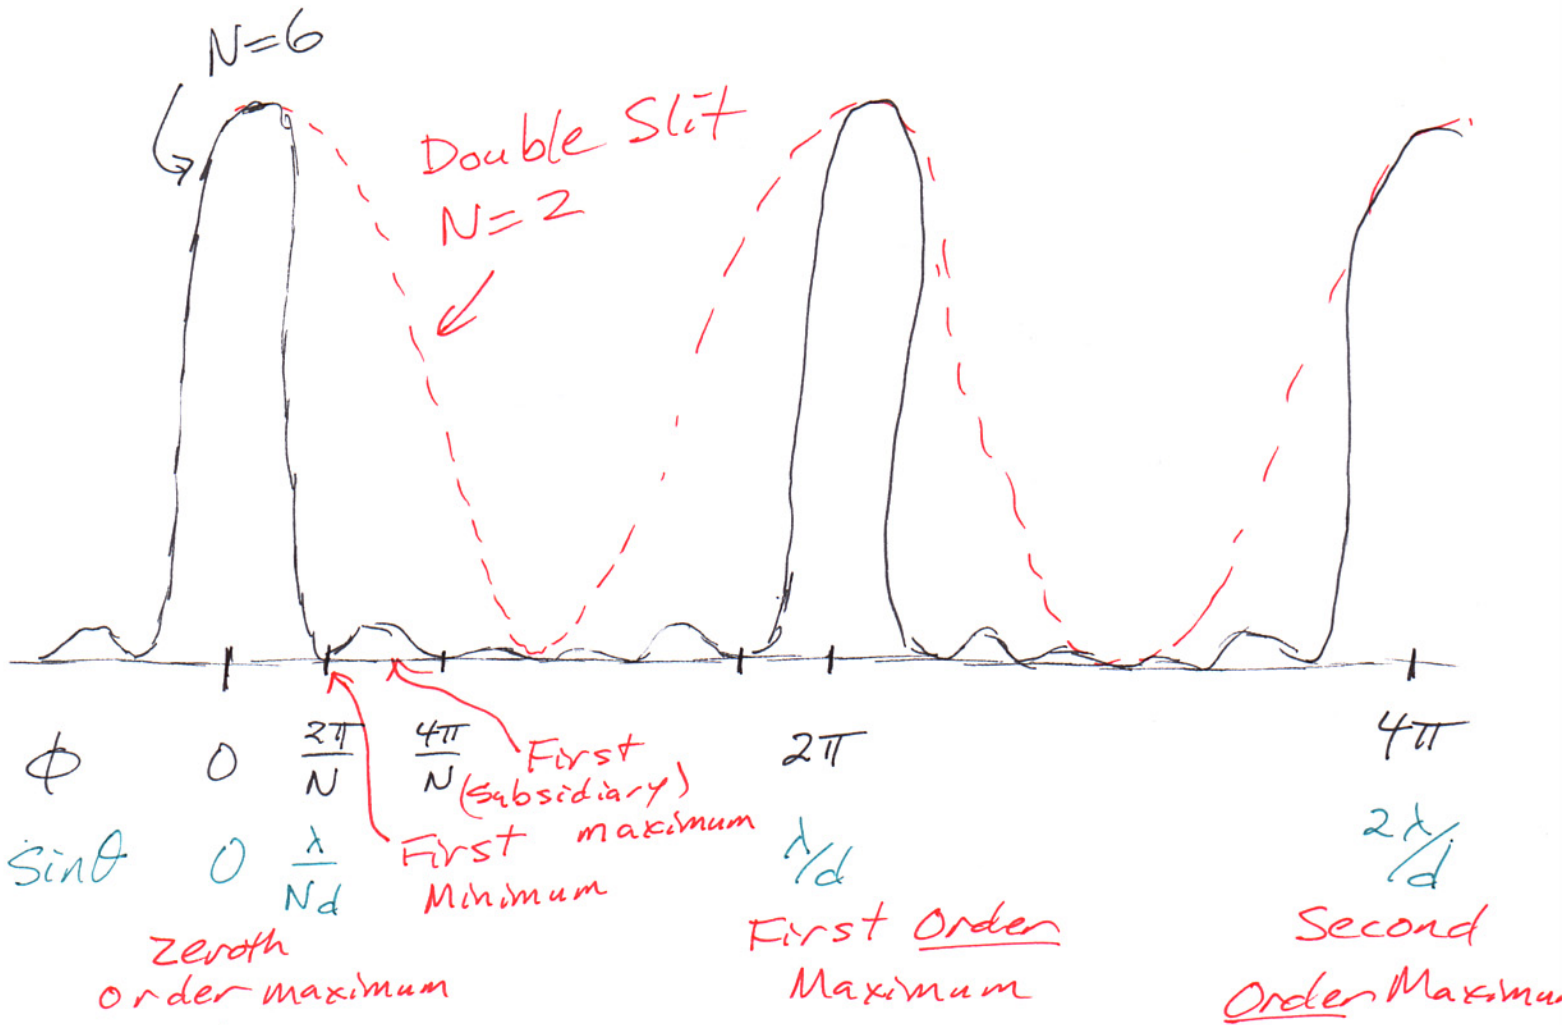 N=6
Double Slit
N=2
ϕ 0 2π/N 4π/N 2π 4π
First
(subsidiary)
maximum
sinθ 0 λ/Nd λ/d 2λ/d
First
Minimum
Zeroth
order maximum
First Order
Maximum
Second
Order Maximu